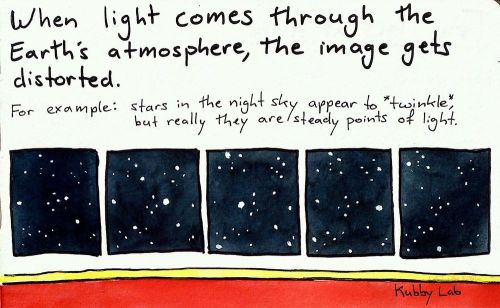 When light comes through the
Earth's atmosphere, the image gets
distorted.
For example: stars in the night sky appear to *twinkle*,
but really they are steady points of light.
Kubby Lab